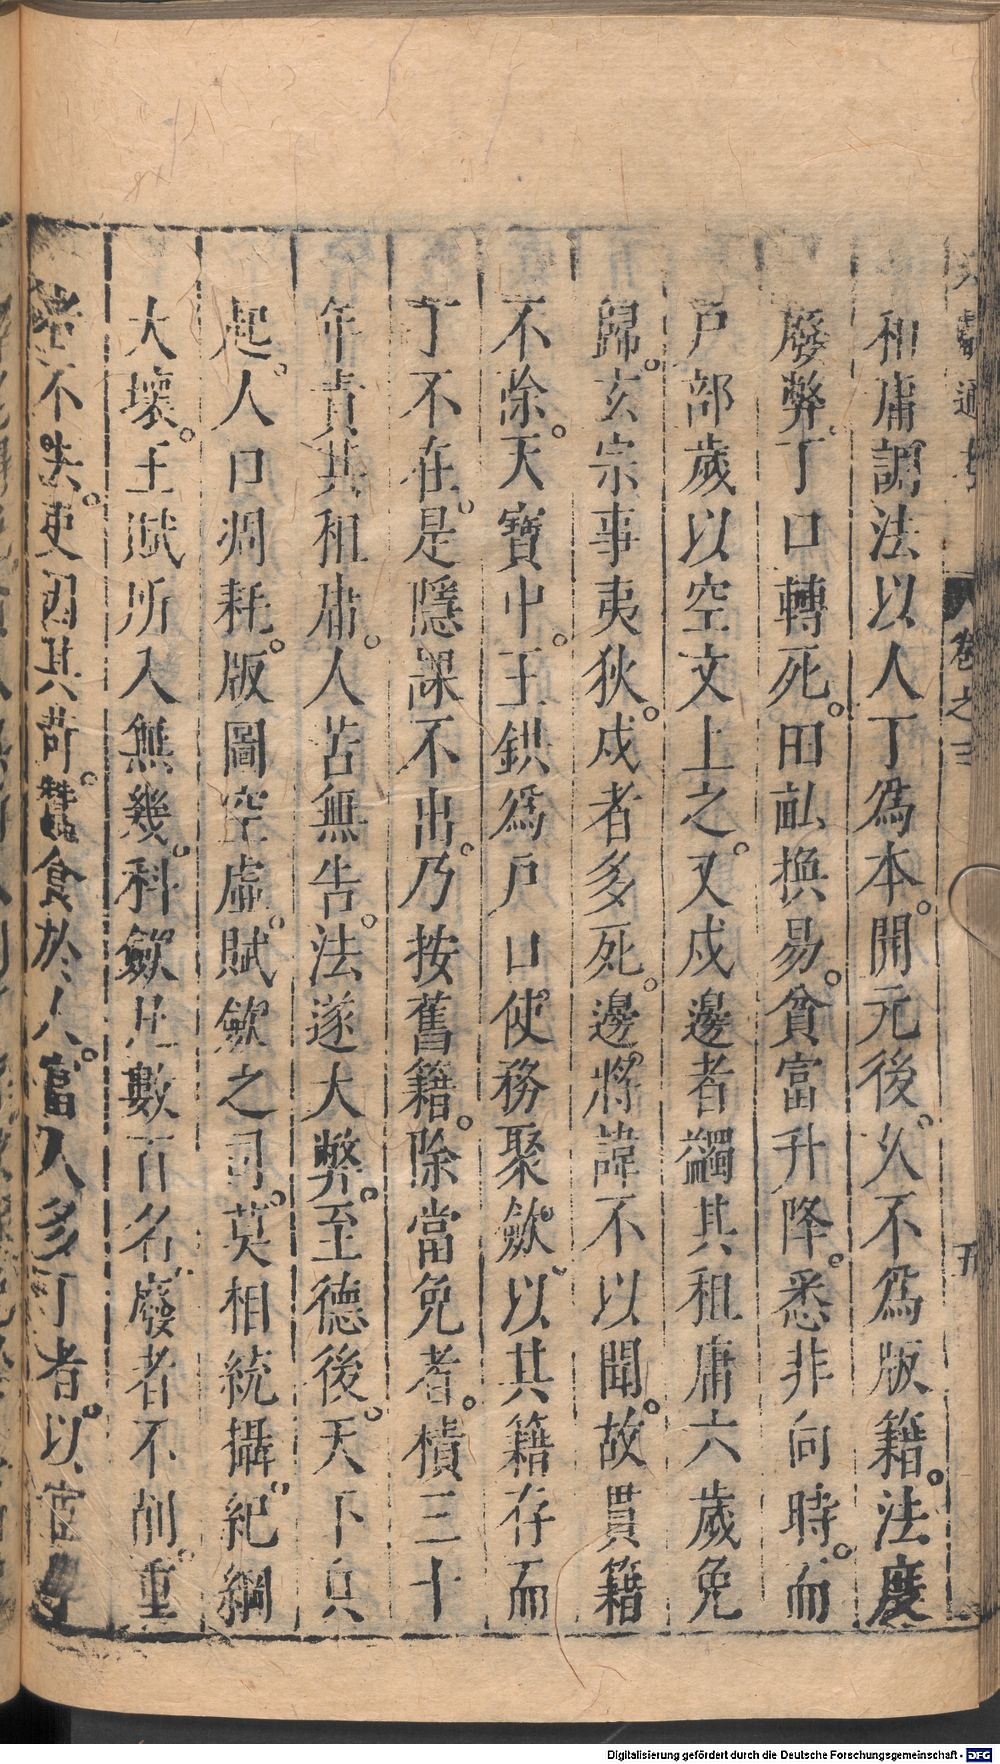 卷之三
五
和庸調法以人丁爲本。開元後。久不爲版籍。法度
廢弊。丁口轉死。田畝換易。貧富升降。悉非向時。而
戸部歲以空文上之。又戍邊者蠲其租庸六歲免
歸。玄宗事夷狄。戍者多死。邊將諱不以聞。故貫籍
不除。天寶中。王鉷爲戸口使務聚斂。以其籍存而
丁不在。是隱課不出。乃按舊籍。除當免者。積三十
年責其租庸。人苦無告。法遂大弊。至德後。天下兵
起。人口凋耗。版圖空虛。賦斂之司。莫相統攝。紀綱
大壞。王賦所入無幾。科斂凡數百名。廢者不削。重
者不去。吏因其苛。蠶食於人。富人多丁者。以宦學
Digitalisierung gefördert durch die Deutsche Forschungsgemeinschaft - DFG